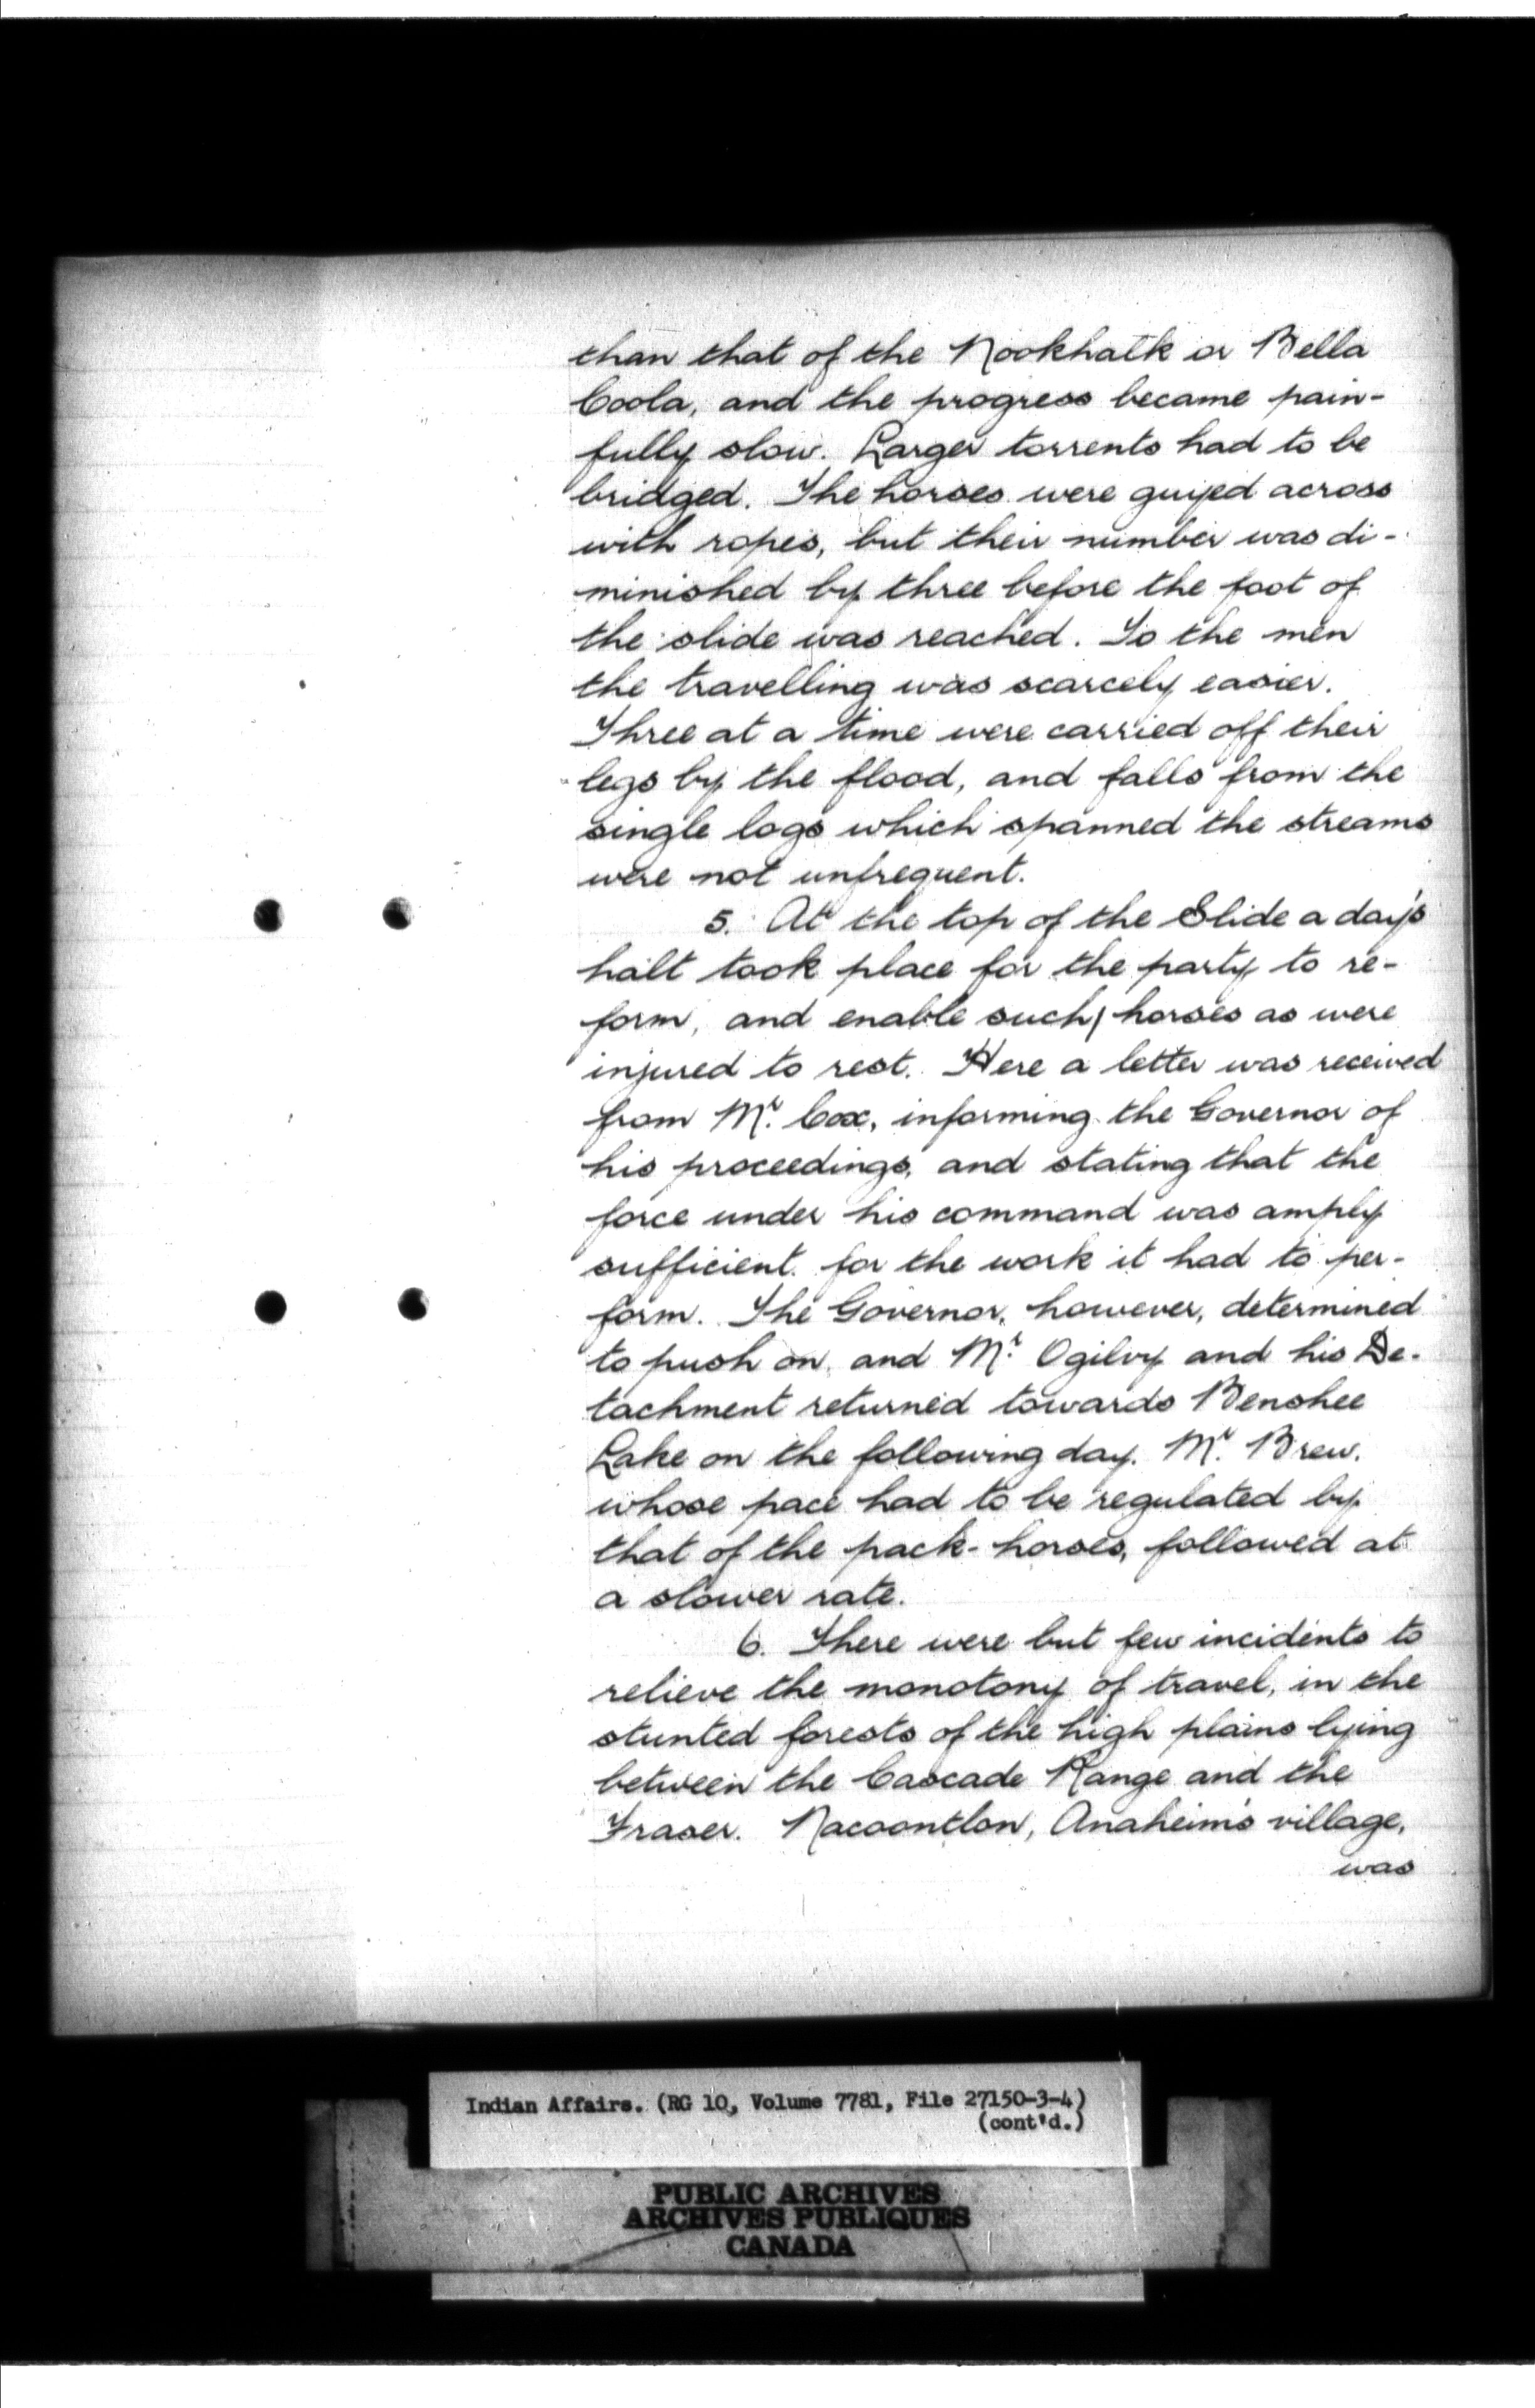 than that of the Nookhalk or Bella
Coola, and the progress became pain-
fully slow. Larger torrents had to be
bridged. The horses were guyed across
with ropes, but their number was di-
minished by three before the foot of
the slide was reached. To the men
the travelling was scarcely easier.
Three at a time were carried off their
legs by the flood, and falls from the
single logs which spanned the streams
were not unfrequent.
5. At the top of the Slide a day's
halt took place for the party to re-
form, and enable such horses as were
injured to rest. Here a letter was received
from Mr. Cox, informing the Governor of
his proceedings, and stating that the
force under his command was amply
sufficient for the work it had to per-
form. The Governor, however, determined
to push on, and Mr. Ogilvy and his De-
tachment returned towards Benshee
Lake on the following day. Mr. Brew,
whose pace had to be regulated by
that of the pack-horses, followed at
a slower rate.
6. There were but few incidents to
relieve the monotony of travel, in the
stunted forests of the high plains lying
between the Cascade Range and the
Fraser. Nacoontlon, Anaheim's village,
was
Indian Affairs. (RG 10, Volume 7781, File 27150-3-4)
(cont'd.)
PUBLIC ARCHIVES
ARCHIVES PUBLIQUES
CANADA